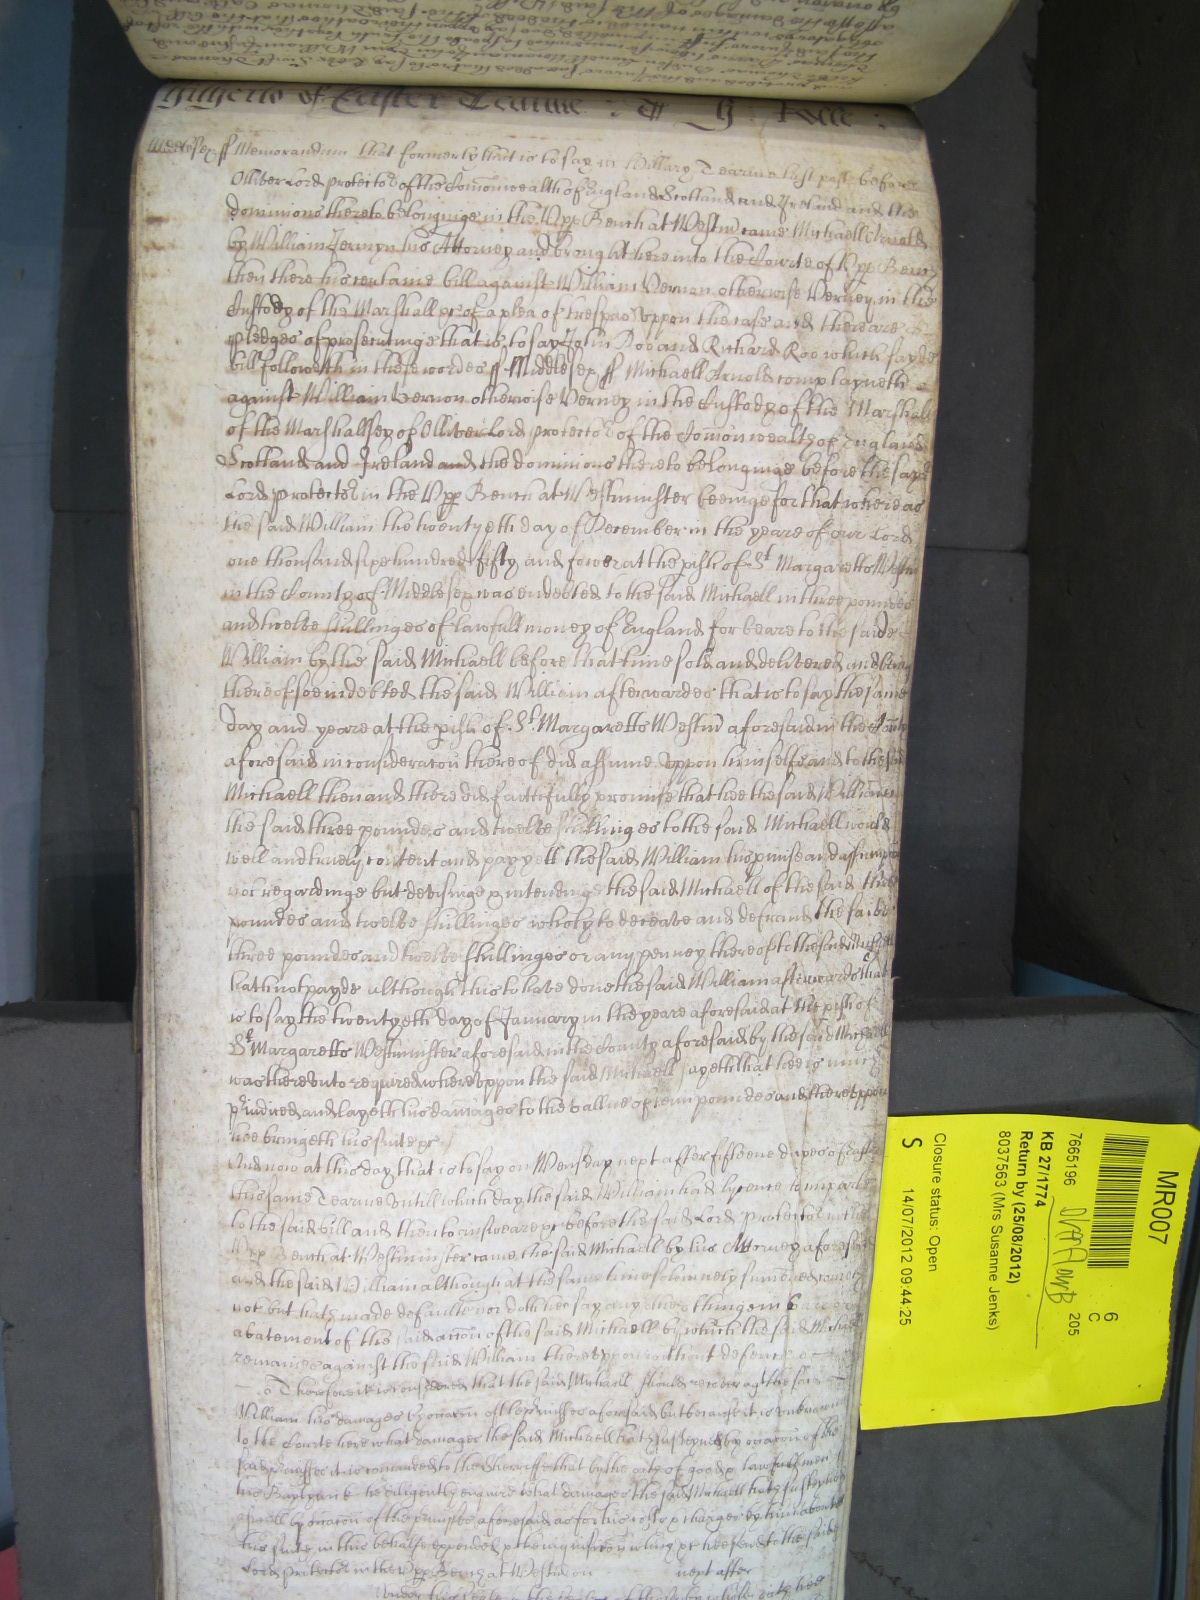 Hitherto of Easter Tearme :
Middlesex ff Memorandum that formerly that is to say in Hillary Tearme last past before
Olliver Lord protector of the Comonwealth of England Scotland and Ireland and the
dominions thereto belonginge in the Upp Bench at Westm came Michaell Arnold
by William Jermyn his Attorney and brought here into the Courte of Upp Bench
then there his certaine bill against William Vernon otherwise Verney in the
Custody of the Marshall &c of a plea of trespas uppon the case and there are
pledges of prosecutinge that is to say John Doo and Richard Roo which sayde
bill followeth in these wordes ff Middlesex ff Michaell Arnold complayneth
against William Vernon otherwise Verney in the Custody of the Marshall
of the Marshallsey of Olliver Lord protector of the Comonwealth of England
Scotland and Ireland and the dominions thereto belonginge before the sayd
Lord protector in the Upp Bench at Westminster beeinge for that whereas
the said William the twentyeth day of December in the yeare of our Lord
one thousand sixe hundred fifty and fower at the pish of St Margaretts Westm
in the County of Middlesex was endebted to the said Michaell in three poundes
and twelve shillinges of lawfull money of England for beare to the saide
William by the said Michaell before that time sold and delivered and being
thereof soe indebted the said William afterwardes that is to say the same
day and yeare at the pish of St Margaretts Westm aforesaid in the County
aforesaid in consideracon thereof did assume uppon himselfe and to the said
Michaell then and there did faithfully promise that hee the said William
the said three poundes and twelve shillinges to the said Michaell would
well and truely content and pay yett the said William his pmise and assumpcon
not regardinge but devisinge & intendinge the said Michaell of the said three
poundes and twelve shillinges wholy to deceave and defraud the saide
three poundes and twelve shillinges or any penney thereof to the said Michaell
hath not payde although this to have done the said William afterwardes that
is to say the twentyeth day of January in the yeare aforesaid at the pish of
St Margaretts Westminster aforesaid in the County aforesaid by the said Michaell
was thereunto required whereuppon the said Michaell sayeth that hee is
piudiced and layeth his damages to the vallue of tenn poundes and thereuppon
hee bringeth his suite &c
And now at this day that is to say on Wensday next after fifteene dayes of Easter
this same Tearme untill which day the said William had lycence to imparle
to the said bill and then to answeare &c before the said Lord Protector in the
Upp Bench at Westminster came the said Michaell by his Attorney aforesaid
and the said William although at the same time solemnely sumoned cometh
not but hath made defaulte nor doth hee say any thinge in barre or
abatement of the said accon of the said Michaell by which the said Michaell
remaines against the said William thereuppon without defence
Therefore it is considered that the said Michaell should recover agt the said
William his damages by occacon of the pmisses aforesaid but because it is unknowne
to the Courte here what damages the said Michaell hath susteyned by occacon of the
said pmisses it is comanded to the Sherriffe that by the oath of good & lawfull men
his Baylywick he diligently enquire what damages the said Michaell hath susteyned
aswell by occacon of the pmisses aforesaid as for his costs & charges by him about
his suite in this behalfe expended & the inquisicon which &c hee send to the said
Lord Protector in the Upp Bench at Westm on next after
under his seale
MR007
6
C
205
7665196
KB 27/1774
Return by (25/08/2012)
8037563 (Mrs Susanne Jenks)
Closure status: Open
S 14/07/2012 09:44:25